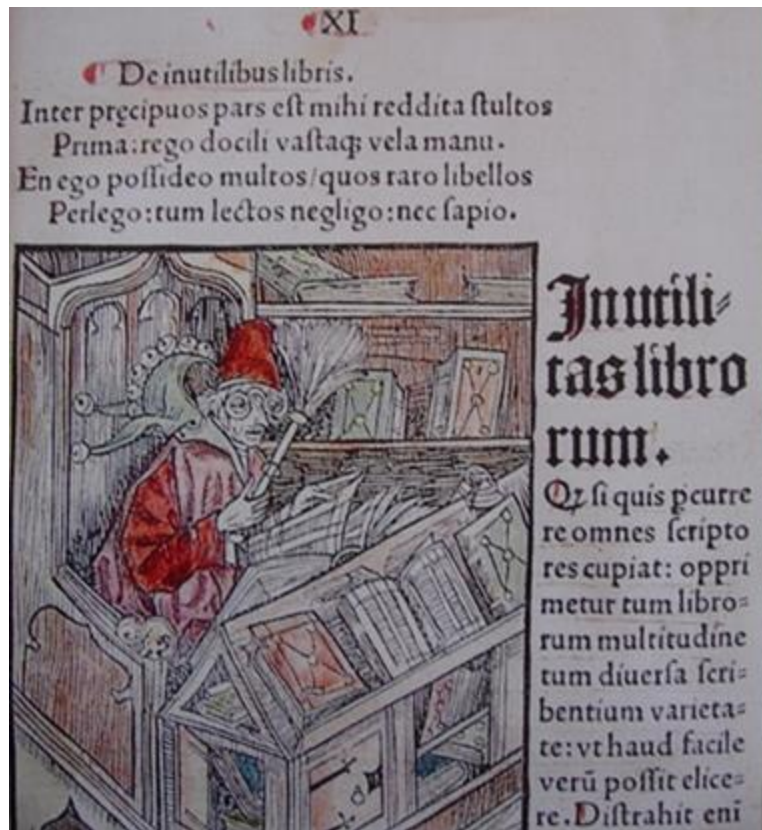 XI
De inutilibus libris.
Inter pręcipuos pars eſt mihi reddita ſtultos
Prima: rego docili vaſtaqꝫ vela manu.
En ego poſſideo multos/quos raro libellos
Perlego: tum lectos negligo: nec ſapio.
Inutili⸗
tas libro
rum.
Qꝫ ſi quis ꝑcurre
re omnes ſcripto
res cupiat: oppri
metur tum libro⸗
rum multitudine
tum diuerſa ſcri⸗
bentium varieta⸗
te: vt haud facile
verū poſſit elice⸗
re. Diſtrahit enī